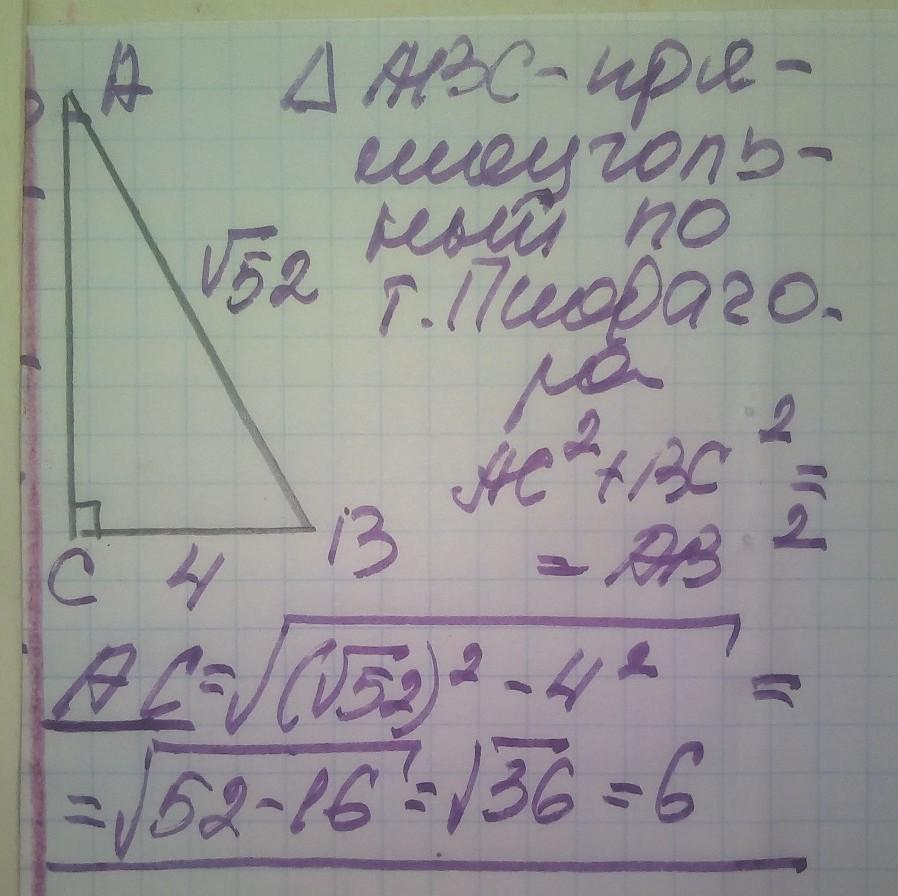 A
△ ABC - пря-
моуголь-
ный по
т. Пифаго-
ра
√52
AC² + BC² =
= AB²
C 4 B
AC = √(√52)² - 4² =
= √52 - 16 = √36 = 6